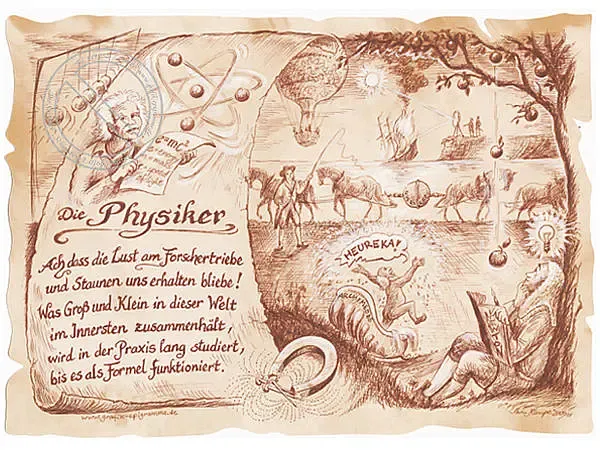 e=mc²
Die Physiker
Ach dass die Lust am Forschertriebe
und Staunen uns erhalten bliebe!
Was Groß und Klein in dieser Welt
im Innersten zusammenhält,
wird in der Praxis lang studiert,
bis es als Formel funktioniert.
HEUREKA!
ARCHIMEDES